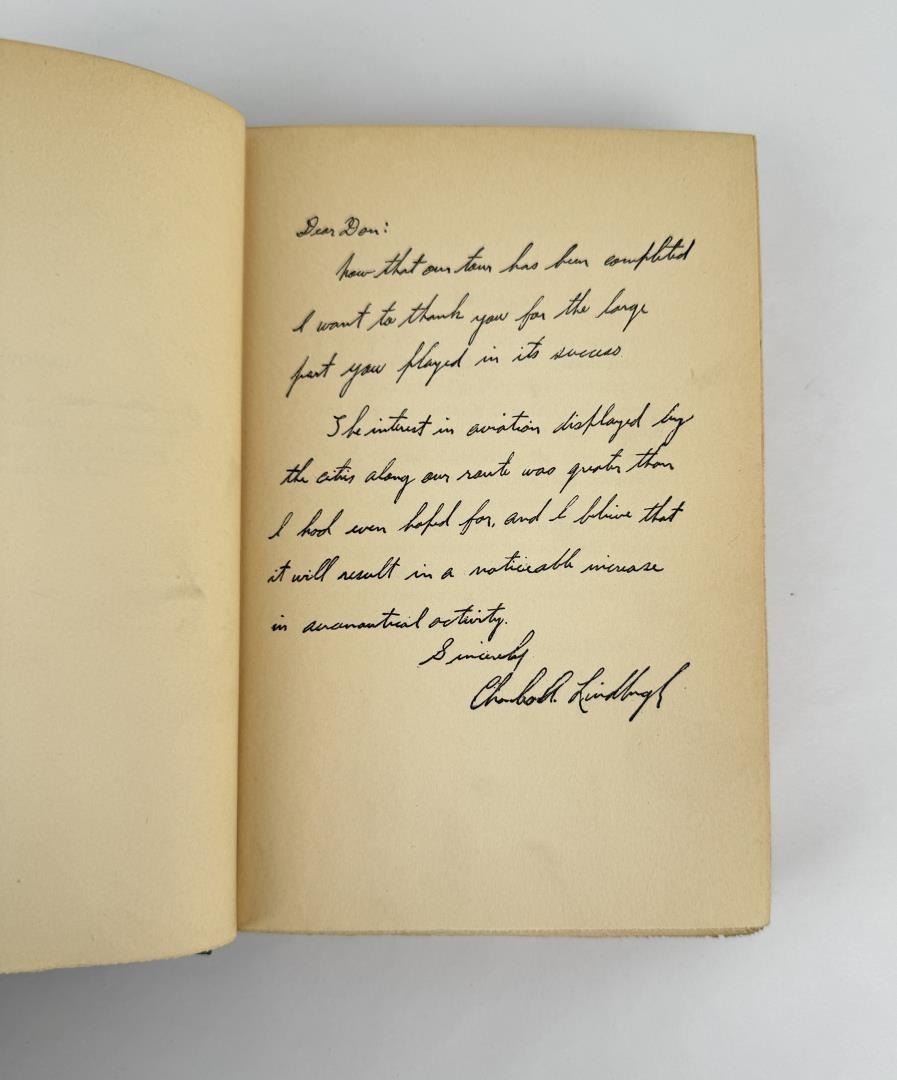 Dear Don:
Now that our tour has been completed
I want to thank you for the large
part you played in its success.
The interest in aviation displayed by
the cities along our route was greater than
I had even hoped for, and I believe that
it will result in a noticeable increase
in aeronautical activity.
Sincerely
Charles A. Lindbergh